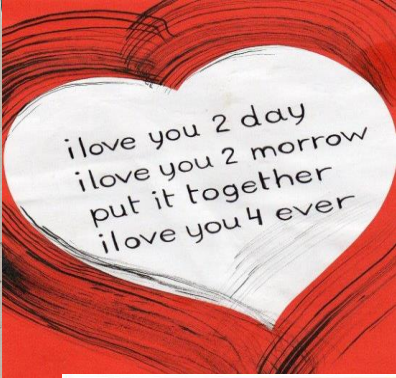 i love you 2 day
i love you 2 morrow
put it together
i love you 4 ever